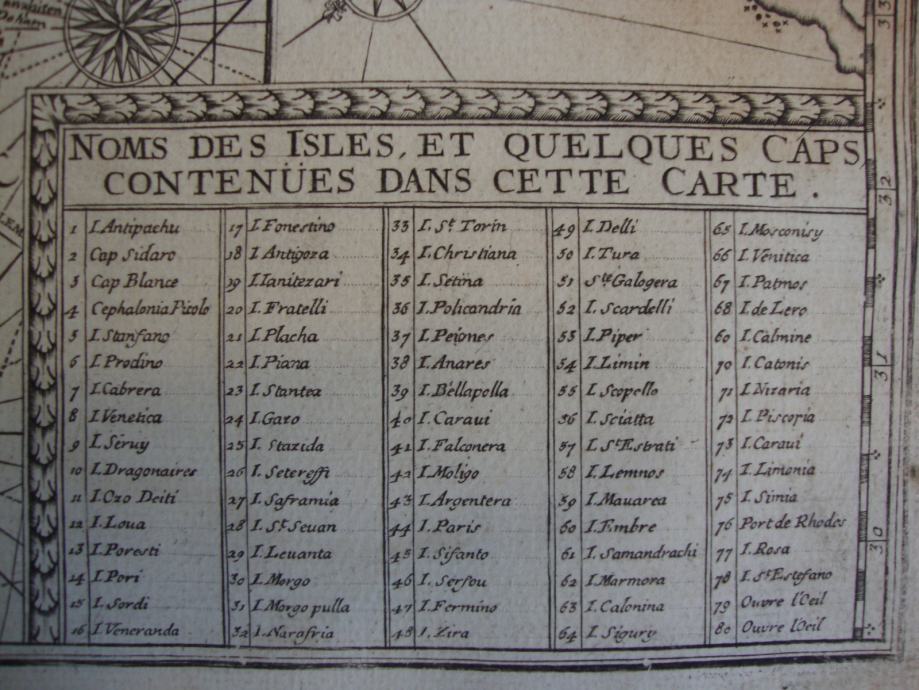 NOMS DES ISLES, ET QUELQUES CAPS
CONTENÜES DANS CETTE CARTE.
1 I. Antipachu
2 Cap Sidaro
3 Cap Blance
4 Cephalonia Picolo
5 I. Stanfano
6 I. Prodino
7 I. Cabrera
8 I. Venetica
9 I. Seruy
10 I. Dragonaires
11 I. Ozo Deiti
12 I. Loua
13 I. Poresti
14 I. Pori
15 I. Sordi
16 I. Veneranda
17 I. Fonestino
18 I. Antigoza
19 I. Ianitezari
20 I. Fratelli
21 I. Placha
22 I. Piana
23 I. Stantea
24 I. Gazo
25 I. Stazida
26 I. Setereffi
27 I. Saframia
28 I. St. Seuan
29 I. Leuanta
30 I. Morgo
31 I. Morgo pulla
32 I. Narafria
33 I. St. Torin
34 I. Christiana
35 I. Setina
36 I. Policandria
37 I. Peiones
38 I. Anares
39 I. Bellapolla
40 I. Caraui
41 I. Falconera
42 I. Moligo
43 I. Argentera
44 I. Paris
45 I. Sifanto
46 I. Serfou
47 I. Fermino
48 I. Zira
49 I. Delli
50 I. Tura
51 Ste Galogera
52 I. Scardelli
53 I. Piper
54 I. Limin
55 I. Scopello
56 I. Sciatta
57 I. St. Estrati
58 I. Lemnos
59 I. Mauarea
60 I. Embre
61 I. Samandrachi
62 I. Marmora
63 I. Calonina
64 I. Sigury
65 I. Mosconisy
66 I. Venitica
67 I. Patmos
68 I. de Lero
60 I. Calmine
70 I. Catonis
71 I. Nizaria
72 I. Piscopia
73 I. Caraui
74 I. Limonia
75 I. Simia
76 Port de Rhodes
77 I. Rosa
78 I. St. Estefano
79 Ouvre l'Oeil
80 Ouvre l'Oeil
32
31
30